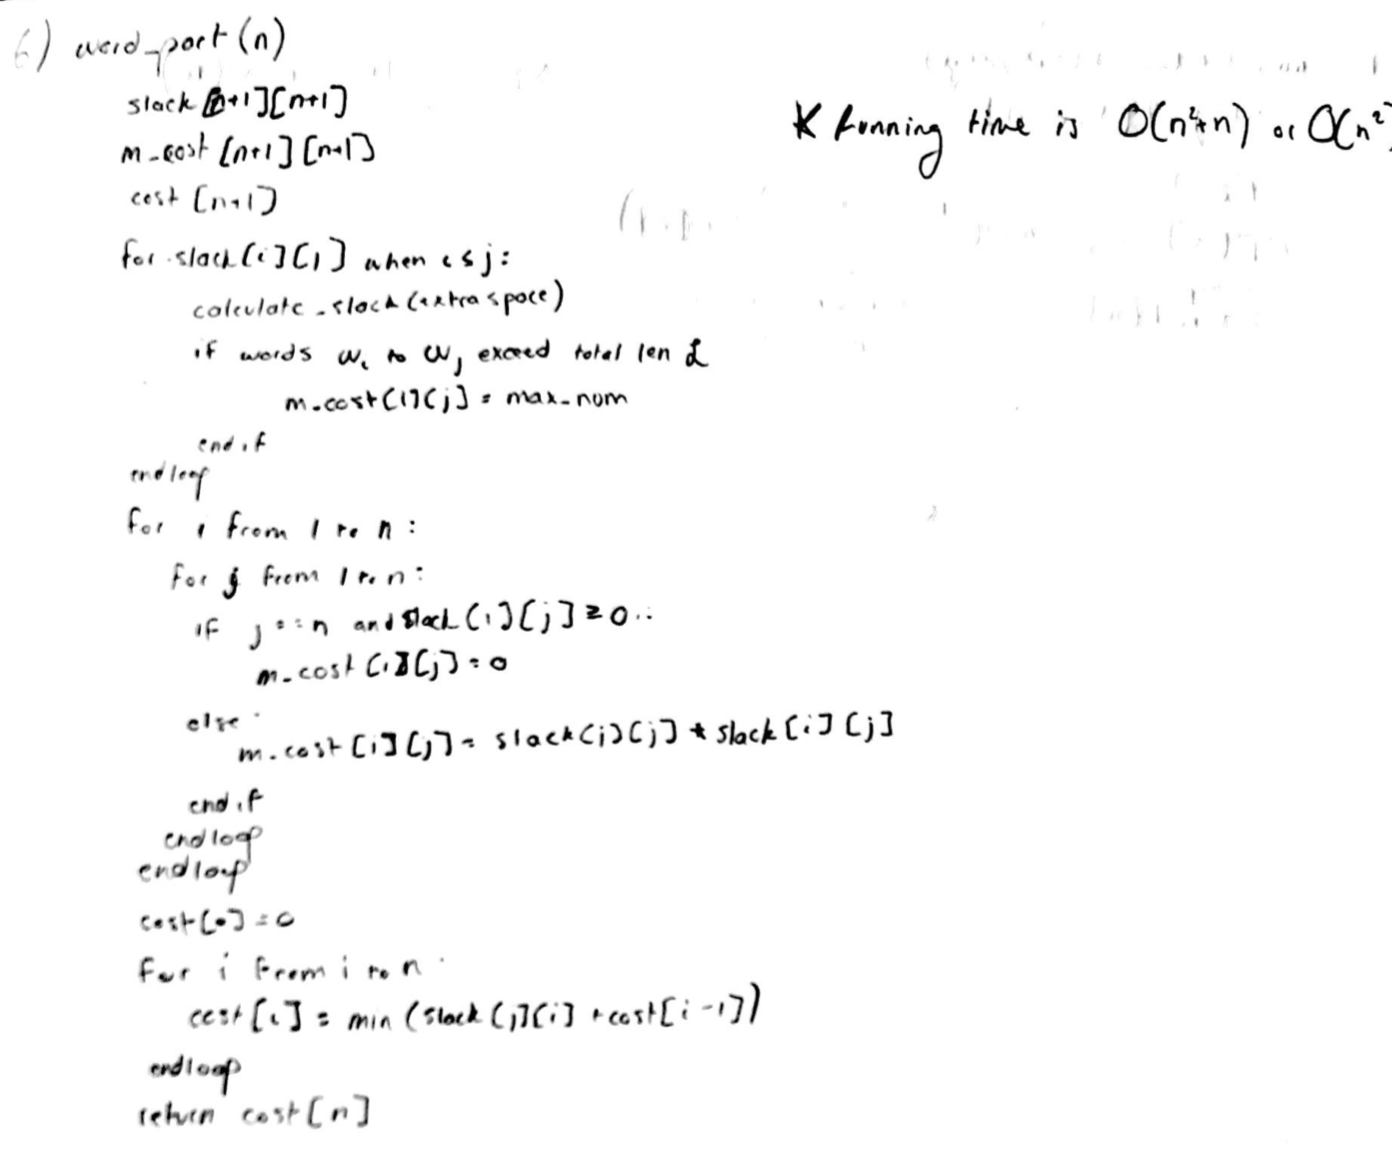 6) word_part (n)
slack [n+1][n+1]
m-cost [n+1][n+1]
cost [n+1]
for slack[i][j] when i ≤ j:
calculate-slack (extra space)
if words wi to wj exceed total len L
m-cost[i][j] = max-num
end if
end loop
for i from 1 to n:
for j from 1 to n:
if j == n and slack[i][j] ≥ 0:
m-cost[i][j] = 0
else
m-cost[i][j] = slack[i][j] * slack[i][j]
end if
end loop
end loop
cost[0] = 0
for i from i to n
cost[i] = min (slack[j][i] + cost[i-1])
end loop
return cost[n]
* Running time is O(n²+n) or O(n²)